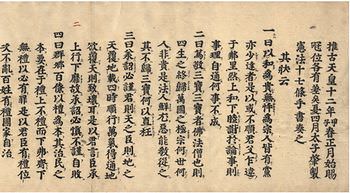 推古天皇十二年甲子春正月始賜
冠位各有差夏四月太子肇製
憲法十七條手書奏之
其狀云
一曰以和為貴無忤為宗人皆有黨
亦少達者是以或不順君父乍違
于鄰里然上和下睦諧於論事則
事理自通何事不成
二曰篤敬三寶三寶者佛法僧也則
四生之終歸萬國之極宗何世何
人非貴是法人鮮尤惡能教從之
其不歸三寶何以直枉
三曰承詔必謹君則天之臣則地之
天覆地載四時順行萬氣得通地
欲覆天則致壞耳是以君言臣承
上行下靡故承詔必慎不謹自敗
二
四曰群卿百僚以禮為本其治民之
本要在乎禮上不禮而下弗齊下
無禮以必有罪是以君臣有禮位
次不亂百姓有禮國家自治